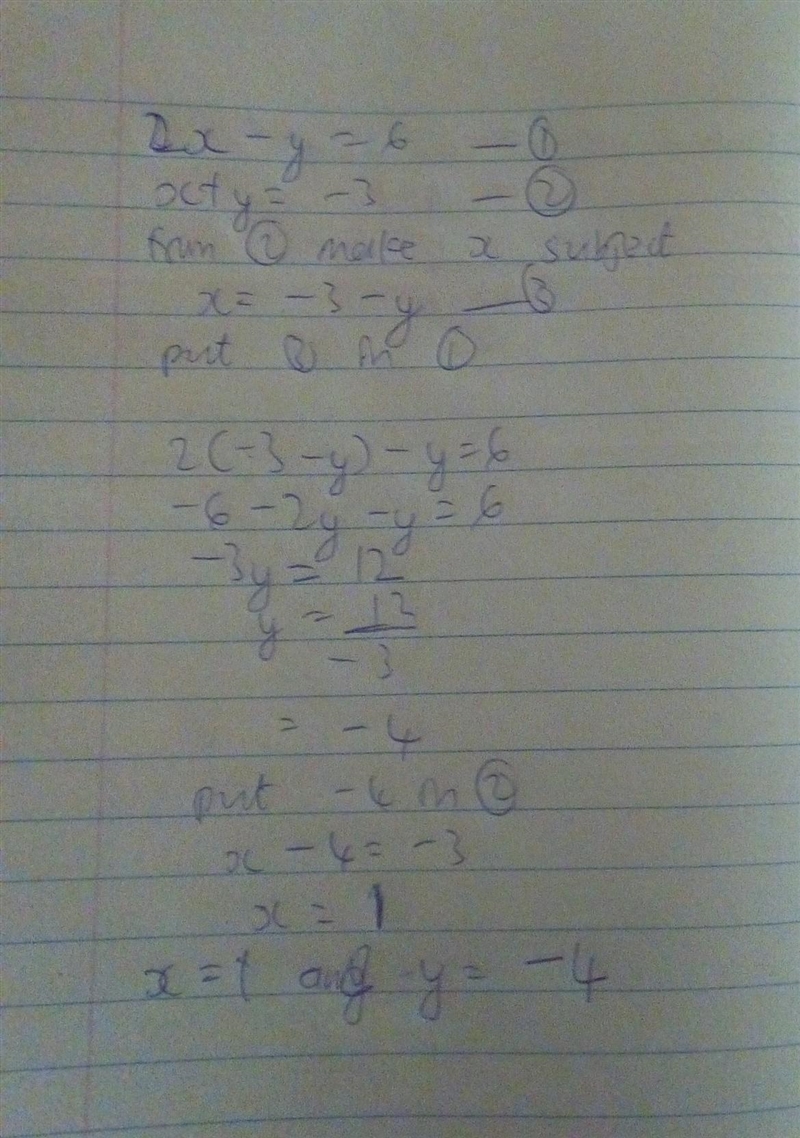 2x - y = 6 — ①
x + y = -3 — ②
from ② make x subject
x = -3 - y — ③
put ③ in ①
2(-3 - y) - y = 6
-6 - 2y - y = 6
-3y = 12
y = 12
-3
= -4
put -4 in ②
x - 4 = -3
x = 1
x = 1 and y = -4